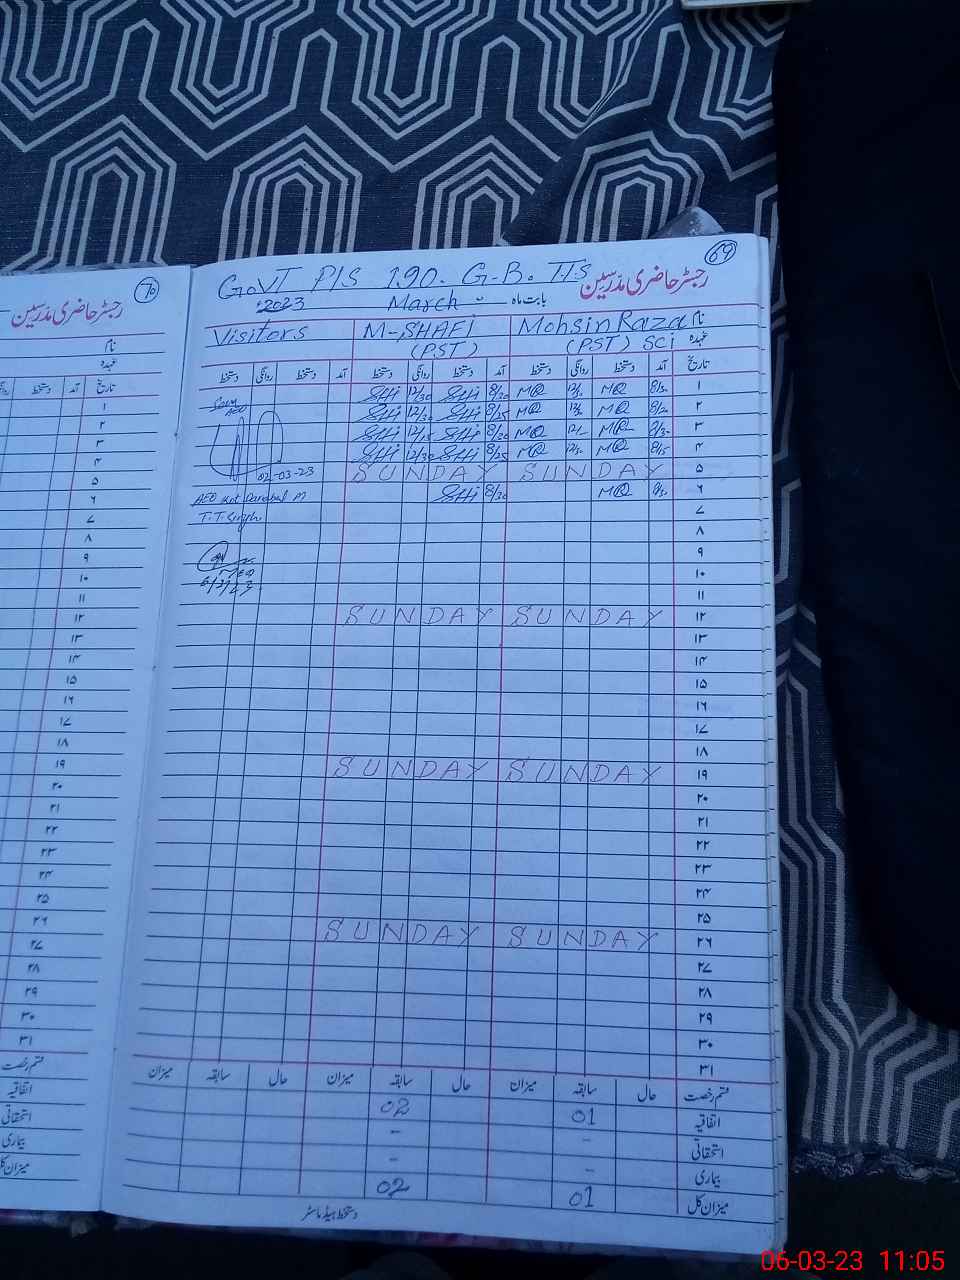 69
GovT P/S 190. G-B. TTS رجسٹر حاضری مدرسین
2023 March بابت ماہ
Visitors M-SHAFI Mohsin Raza نام
(PST) (PST) SCi عہدہ
دستخط روانگی دستخط آمد دستخط روانگی دستخط آمد دستخط روانگی دستخط آمد تاریخ
12/30 8/30 MQ MQ ۱
AEO 12/30 8/25 MQ MQ ۲
12/15 8/30 MQ MQ ۳
12/30 8/25 MQ MQ ۴
02-03-23 SUNDAY SUNDAY ۵
AEO 8/30 MQ ۶
T.T.Singh ۷
۸
۹
۱۰
6/3/23 ۱۱
SUNDAY SUNDAY ۱۲
۱۳
۱۴
۱۵
۱۶
۱۷
۱۸
SUNDAY SUNDAY ۱۹
۲۰
۲۱
۲۲
۲۳
۲۴
۲۵
SUNDAY SUNDAY ۲۶
۲۷
۲۸
۲۹
۳۰
۳۱
میزان سابقہ حال میزان سابقہ حال میزان سابقہ حال قسم رخصت
02 01 اتفاقیہ
- - استحقاقی
- - بیماری
02 01 میزان کل
دستخط ہیڈ ماسٹر
70
رجسٹر حاضری مدرسین
نام
عہدہ
دستخط آمد تاریخ
۱
۲
۳
۴
۵
۶
۷
۸
۹
۱۰
۱۱
۱۲
۱۳
۱۴
۱۵
۱۶
۱۷
۱۸
۱۹
۲۰
۲۱
۲۲
۲۳
۲۴
۲۵
۲۶
۲۷
۲۸
۲۹
۳۰
۳۱
قسم رخصت
اتفاقیہ
استحقاقی
بیماری
میزان کل
06-03-23 11:05